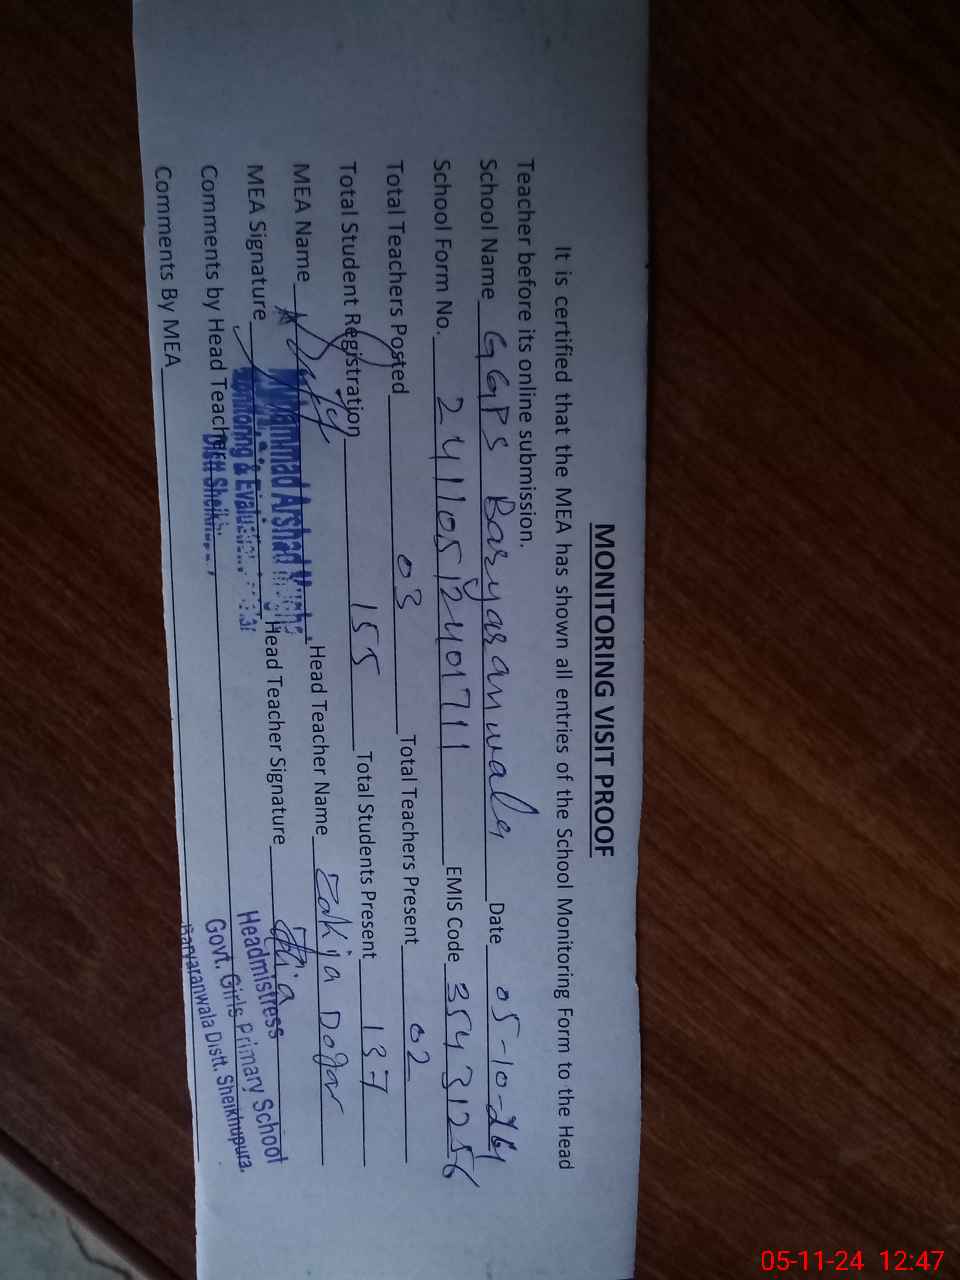 MONITORING VISIT PROOF
It is certified that the MEA has shown all entries of the School Monitoring Form to the Head
Teacher before its online submission.
School Name GGPS Baryaranwala Date 05-10-24
School Form No. 24110512401711 EMIS Code 35431256
Total Teachers Posted 03 Total Teachers Present 02
Total Student Registration 155 Total Students Present 137
MEA Name Head Teacher Name Zakia Dogar
Muhammad Arshad
MEA Signature Head Teacher Signature
Monitoring & Evaluation
Headmistress
Comments by Head Teacher
Distt
Govt. Girls Primary School
Baryaranwala Distt. Sheikhupura.
Comments By MEA
05-11-24 12:47